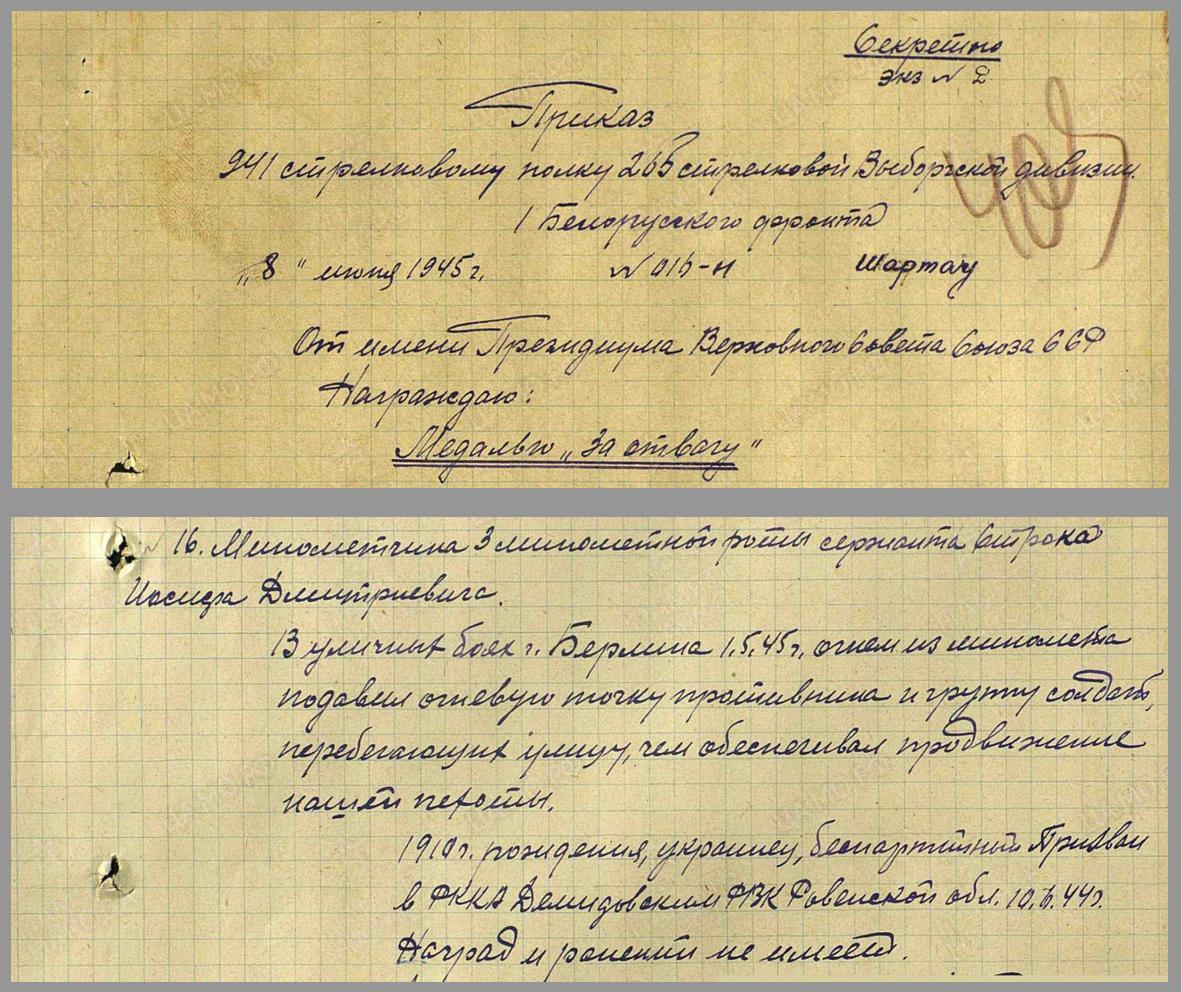 Секретно
экз № 2
Приказ
941 стрелковому полку 265 стрелковой Выборгской дивизии
1 Белорусского фронта
„8" июня 1945 г. № 016-н Шартау
От имени Президиума Верховного Совета Союза ССР
Награждаю:
Медалью „За отвагу"
16. Минометчика 3 минометной роты сержанта Строка
Иосифа Дмитриевича.
В уличных боях г. Берлина 1.5.45 г., огнем из миномета
подавил огневую точку противника и группу солдат,
перебегающих улицу, чем обеспечивал продвижение
нашей пехоты.
1910 г. рождения, украинец, беспартийный Призван
в РККА Демидовским РВК Ровенской обл. 10.6.44 г.
Наград и ранений не имеет.